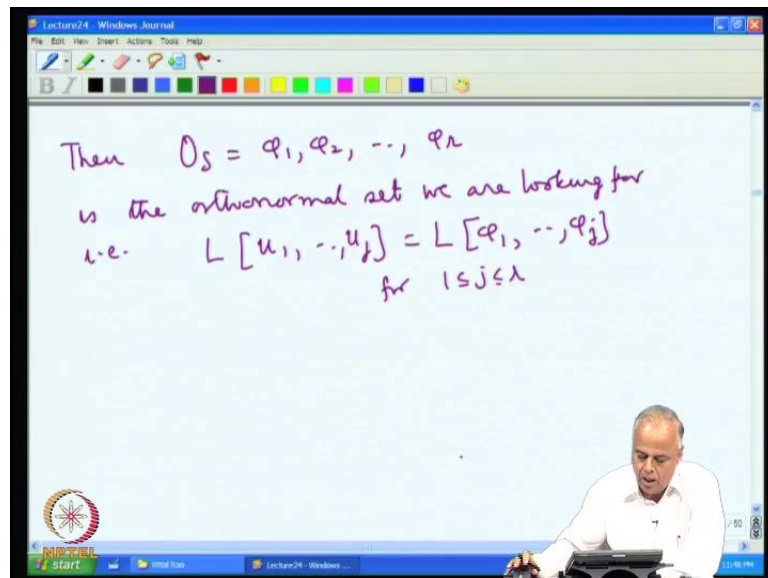 Lecture24 - Windows Journal
File Edit View Insert Actions Tools Help
B I
Then O_S = φ1, φ2, ..., φr
is the orthonormal set we are looking for
i.e. L[u1, ..., uj] = L[φ1, ..., φj]
for 1 ≤ j ≤ r
/ 50
NPTEL
start Vittal Rao Lecture24 - Windows ... 11:48 PM